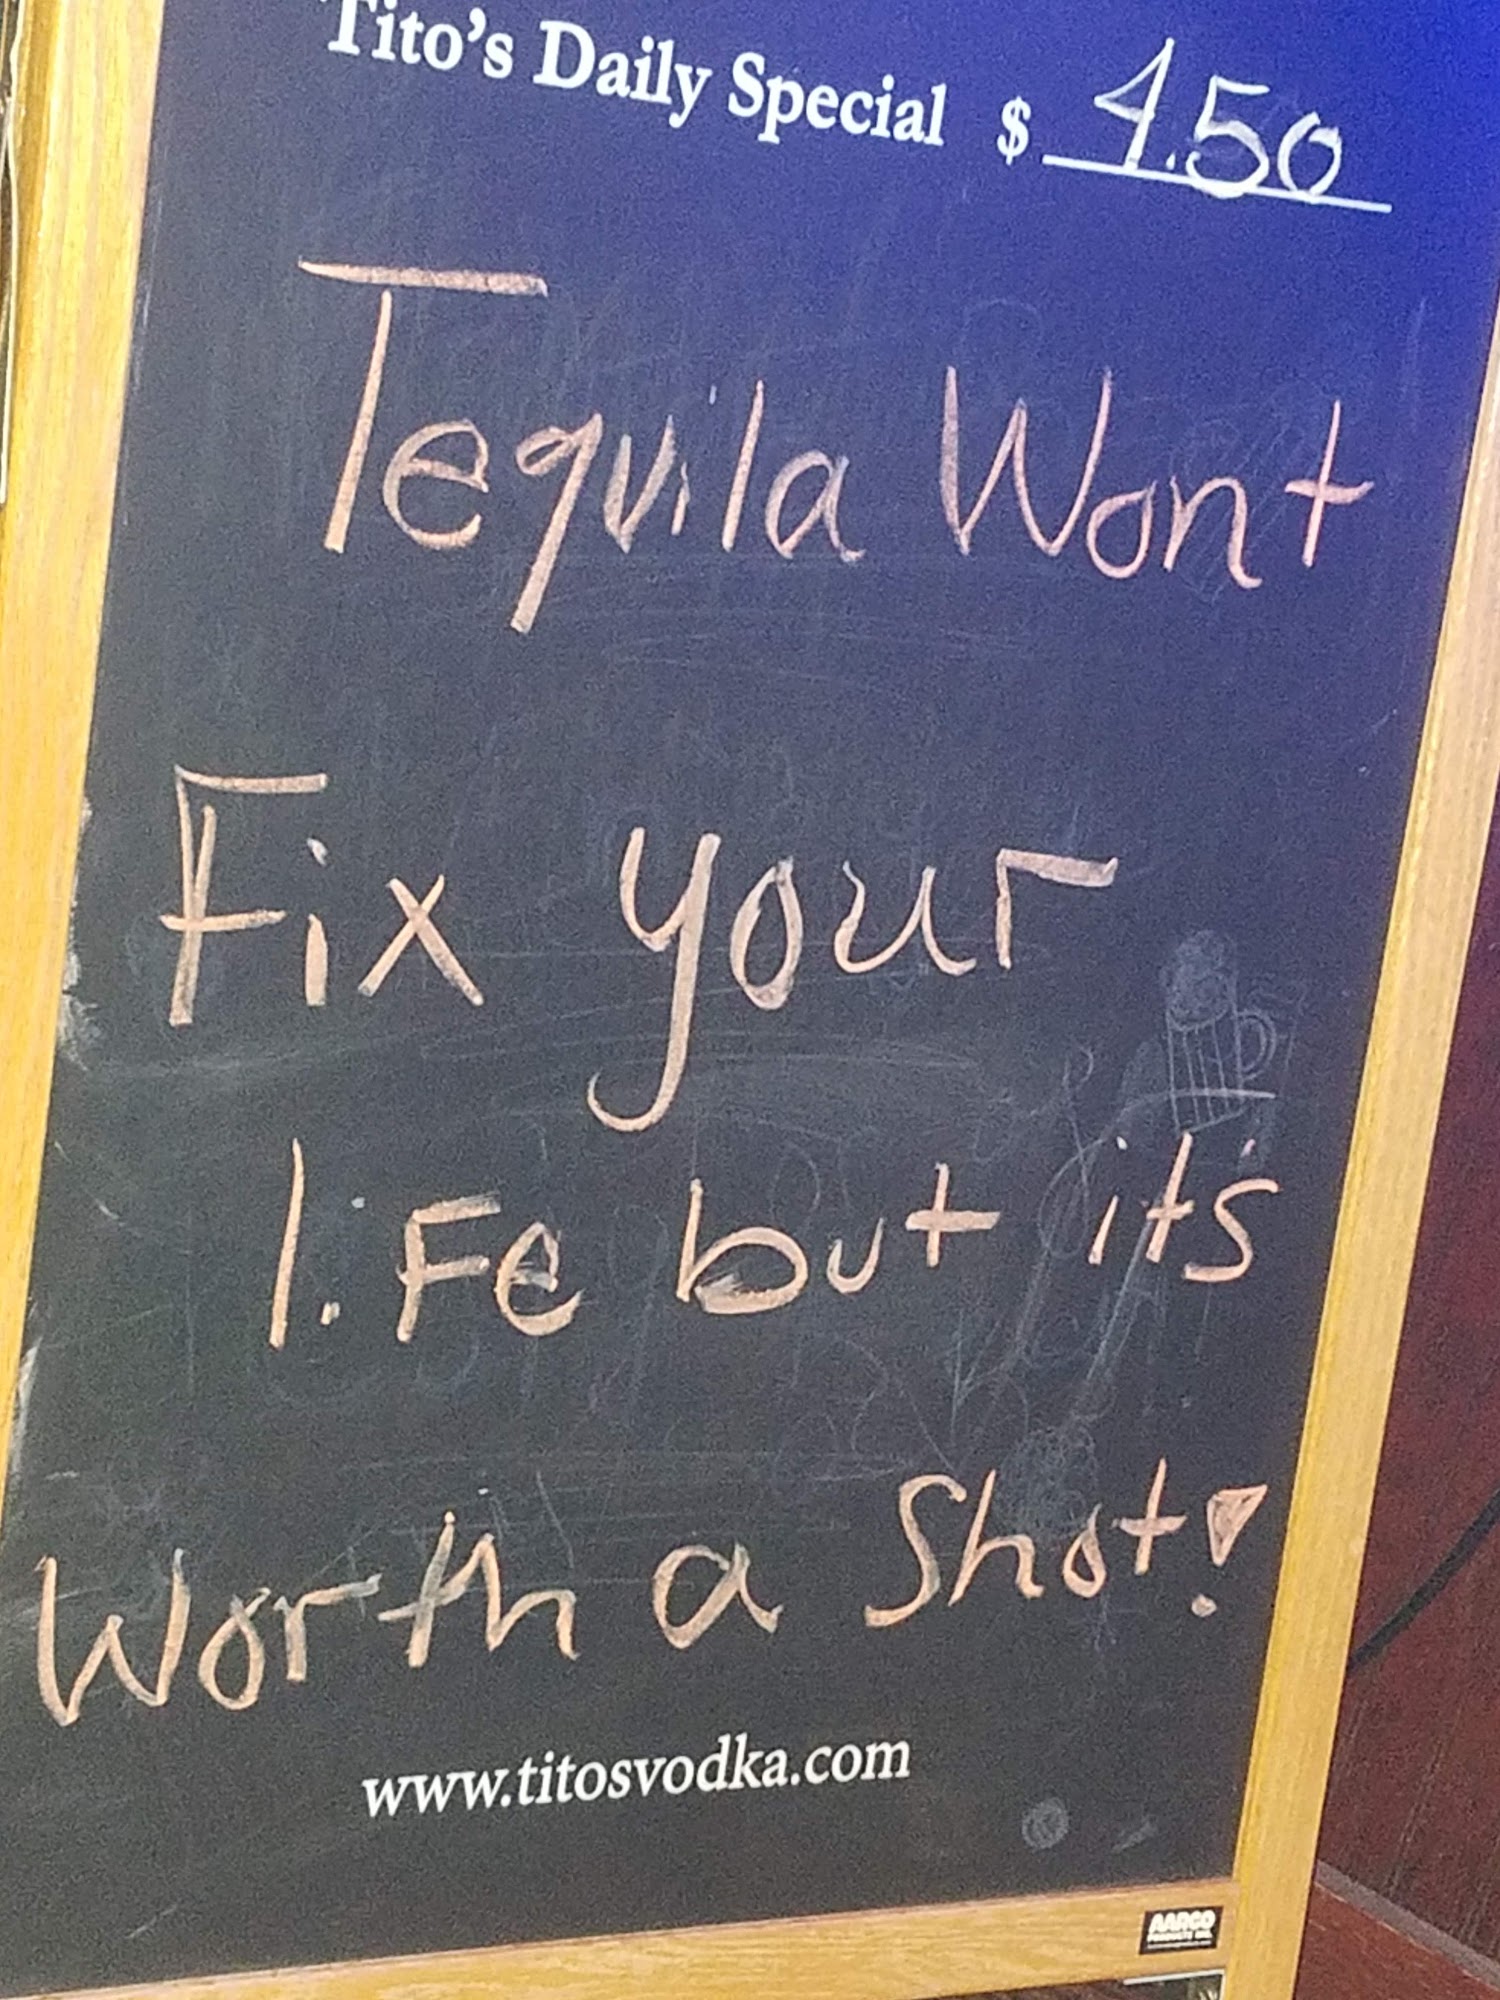 Tito's Daily Special $ 4.50
Tequila Wont
Fix your
life but it's
Worth a Shot!
www.titosvodka.com
AARCO
PRODUCTS INC.